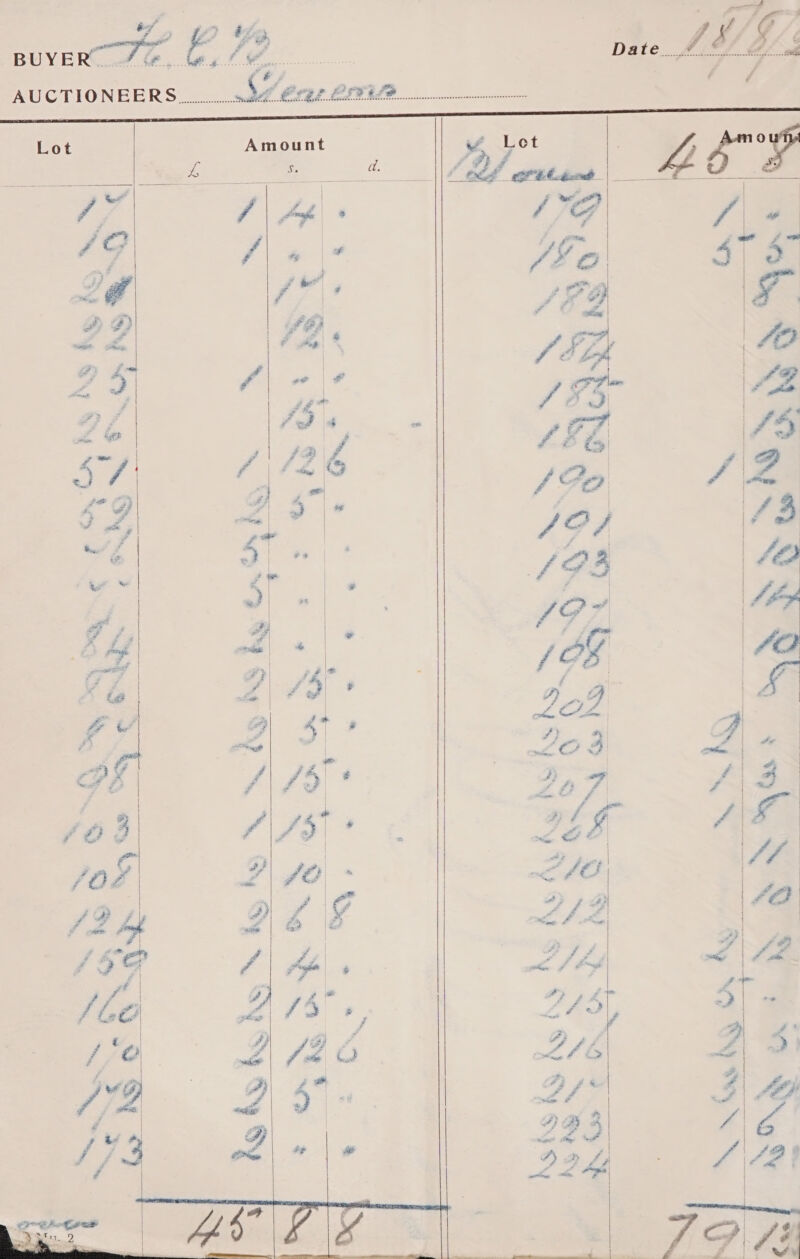 BUYER H. C. B
Date 18/8/
AUCTIONEERS Stevens
Lot Amount
£ s. d.
17 1 4 "
19 1 " "
2 17 "
22 12 "
25 1 " "
26 15 "
51 1 12 6
52 2 5 "
5 " "
5 " "
84 2 " "
86 2 15 "
87 2 5 "
98 1 15 "
103 1 15 "
108 2 10 "
124 2 6 8
159 1 4 "
160 2 15 "
170 2 12 6
172 2 5 "
173 2 " "
over 45 8 8
2
Lot Amount
45 8
179 1 "
180 5 5
182 8
184 10
185 12
186 15
190 1 2
191 13
193 10
197 14
198 10
202 8
203 2 "
207 1 3
208 1 8
210 11
212 10
214 2 12
215 5 "
216 2 5
217 3 10
223 1 6
224 1 12
79 13